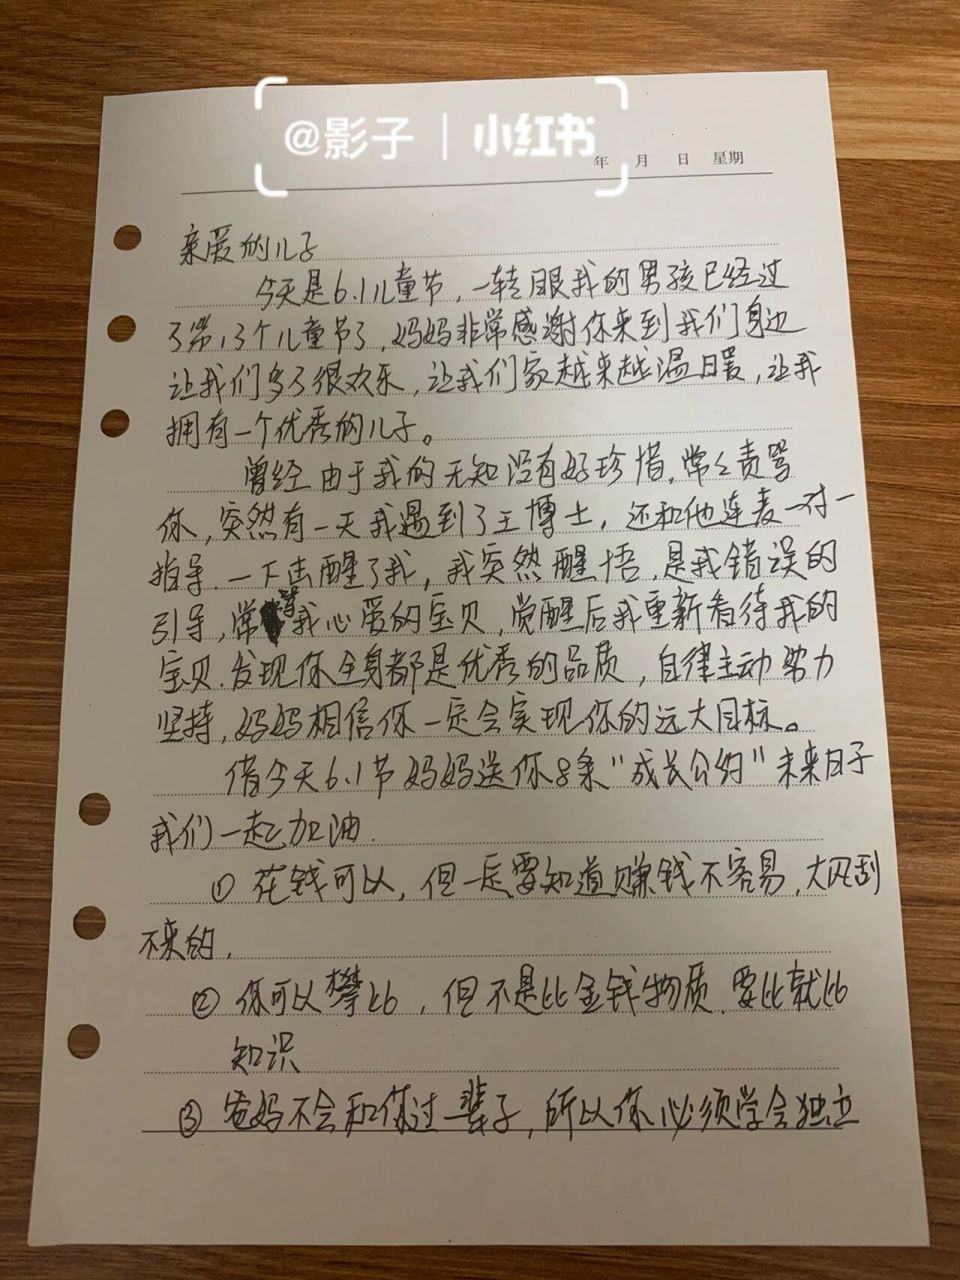 @影子 | 小红书
年 月 日 星期
亲爱的儿子
今天是6.1儿童节,一转眼我的男孩已经过
了第13个儿童节了,妈妈非常感谢你来到我们身边
让我们多了很欢乐,让我们家越来越温暖,让我
拥有一个优秀的儿子。
曾经由于我的无知没有好珍惜,常々责骂
你,突然有一天我遇到了王博士,还和他连麦一对一
指导.一下击醒了我,我突然醒悟,是我错误的
引导,常我心爱的宝贝,觉醒后我重新看待我的
宝贝.发现你全身都是优秀的品质,自律主动努力
坚持,妈妈相信你一定会实现你的远大目标。
借今天6.1节妈妈送你8条"成长公约"未来日子
我们一起加油.
① 花钱可以,但一定要知道赚钱不容易,大风刮
不来的,
② 你可以攀比,但不是比金钱物质.要比就比
知识
③ 爸妈不会和你过一辈子,所以你必须学会独立